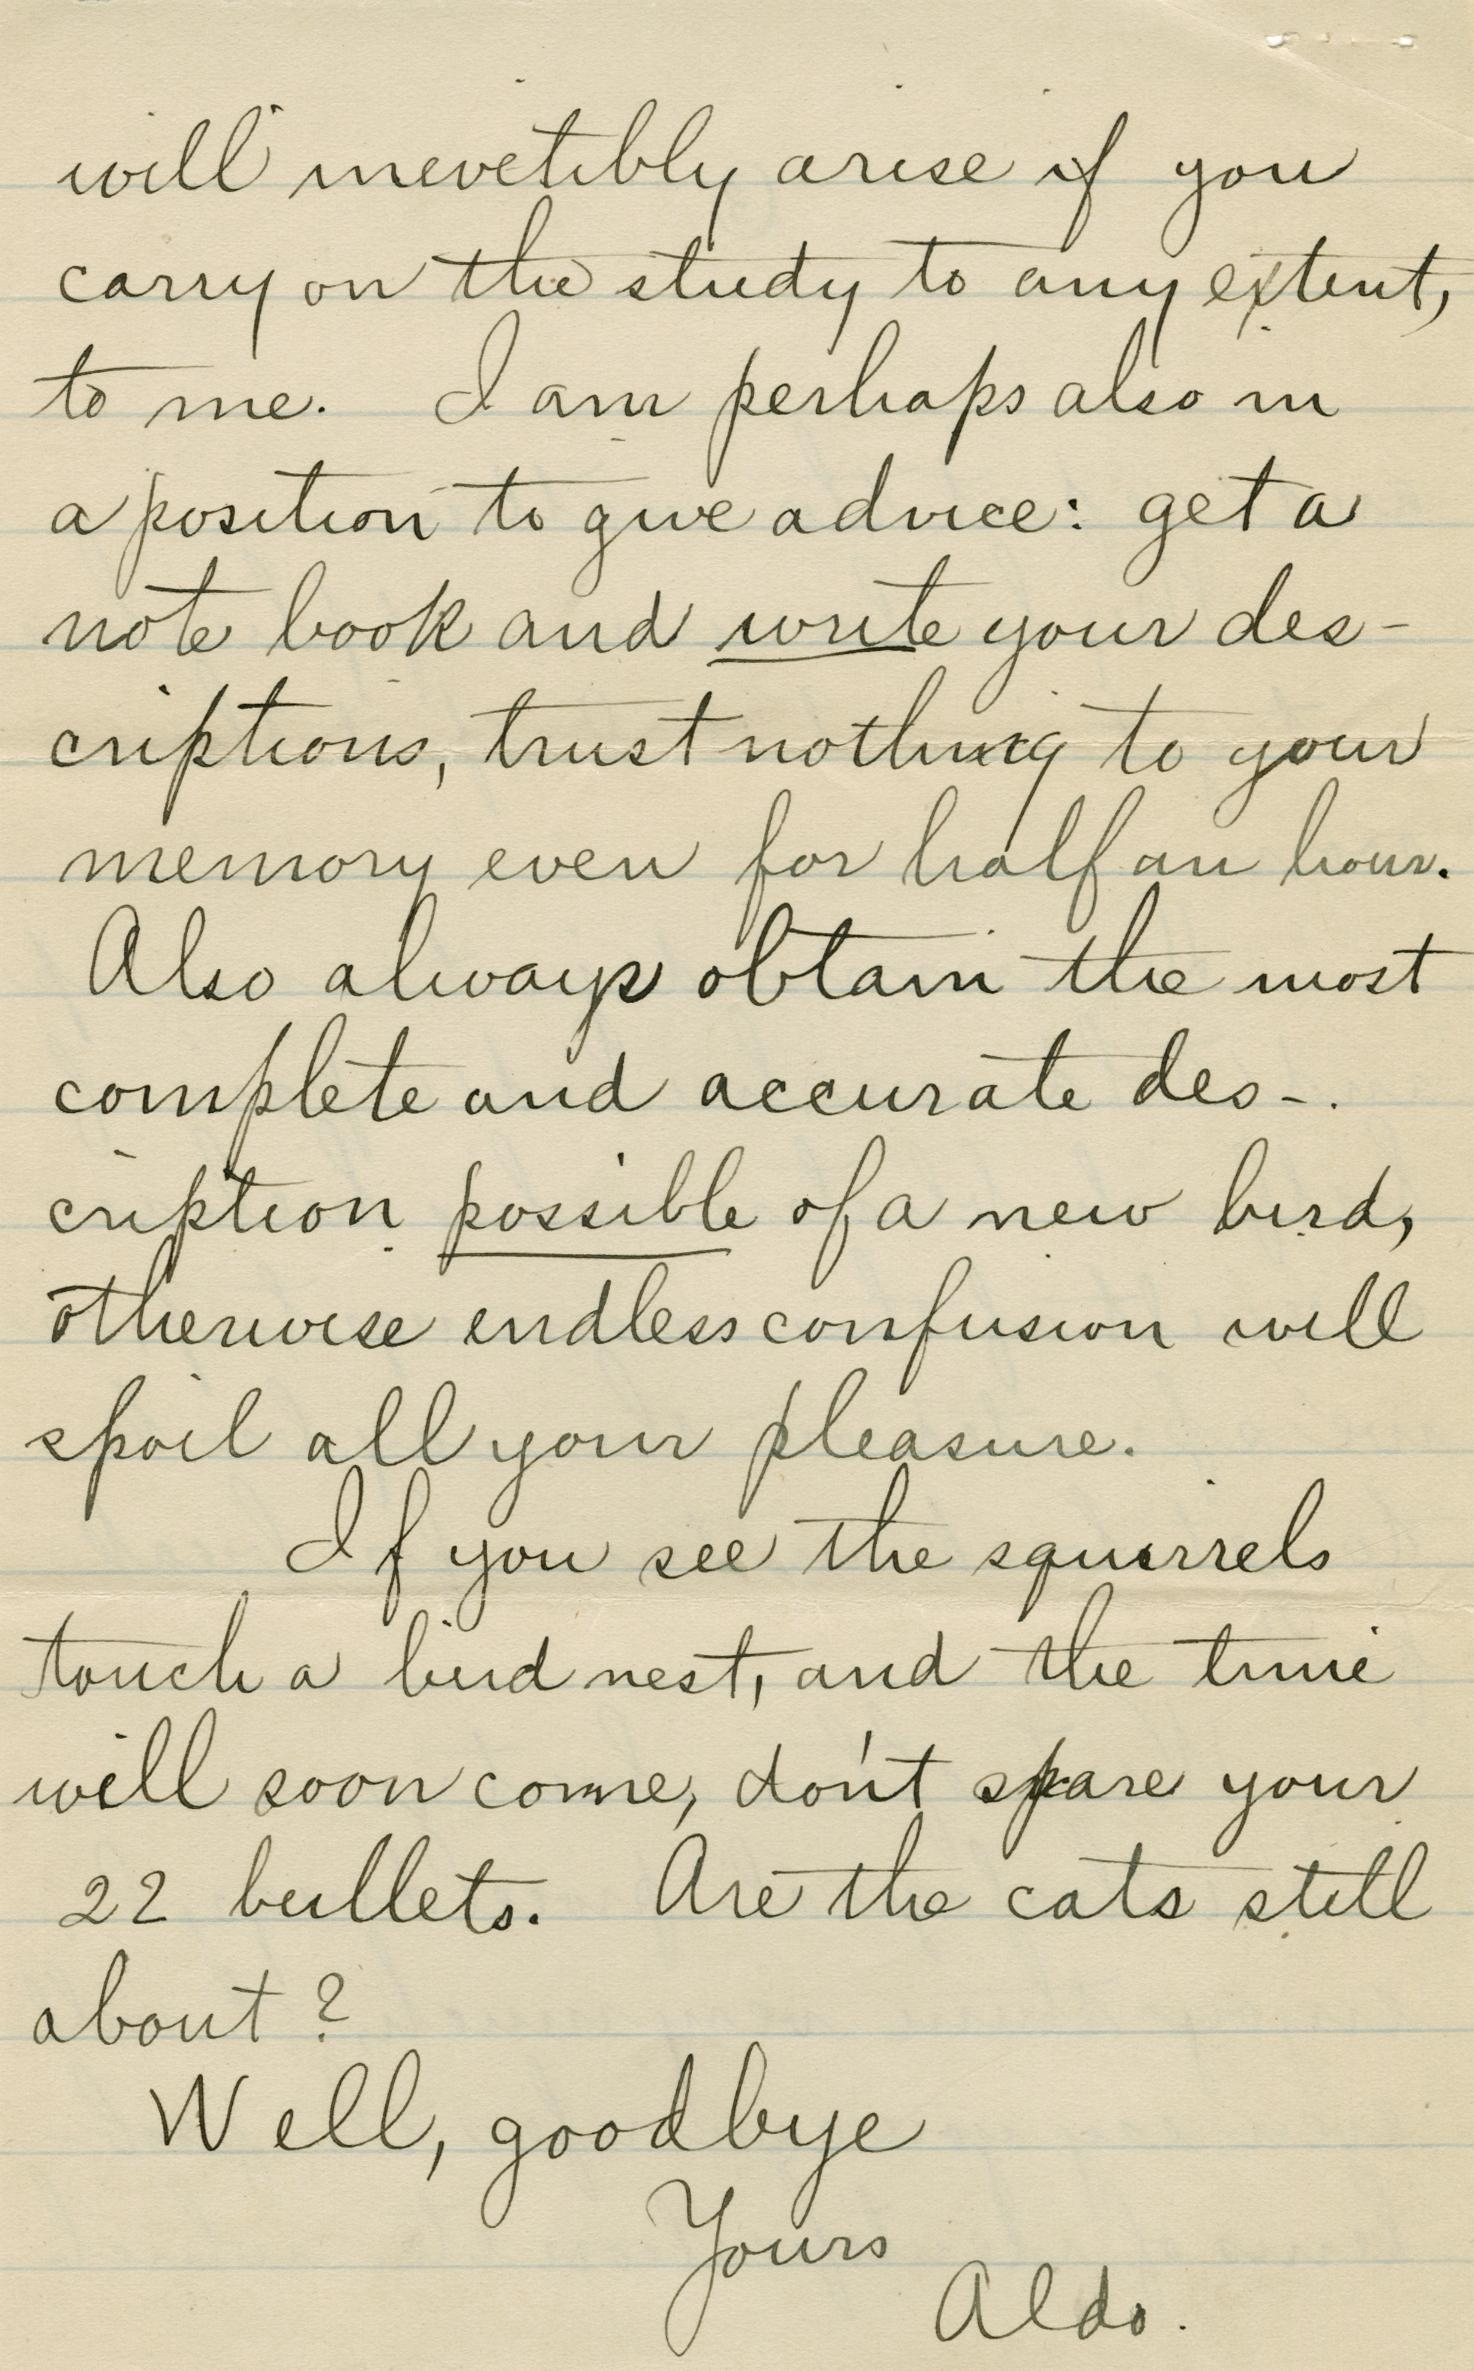 will inevetibly arise if you
carry on the study to any extent,
to me. I am perhaps also in
a position to give advice: get a
note book and write your des-
criptions, trust nothing to your
memory even for half an hour.
Also always obtain the most
complete and accurate des-
cription possible of a new bird,
otherwise endless confusion will
spoil all your pleasure.
If you see the squirrels
touch a bird nest, and the time
will soon come, don't spare your
22 bullets. Are the cats still
about?
Well, goodbye
Yours
Aldo.